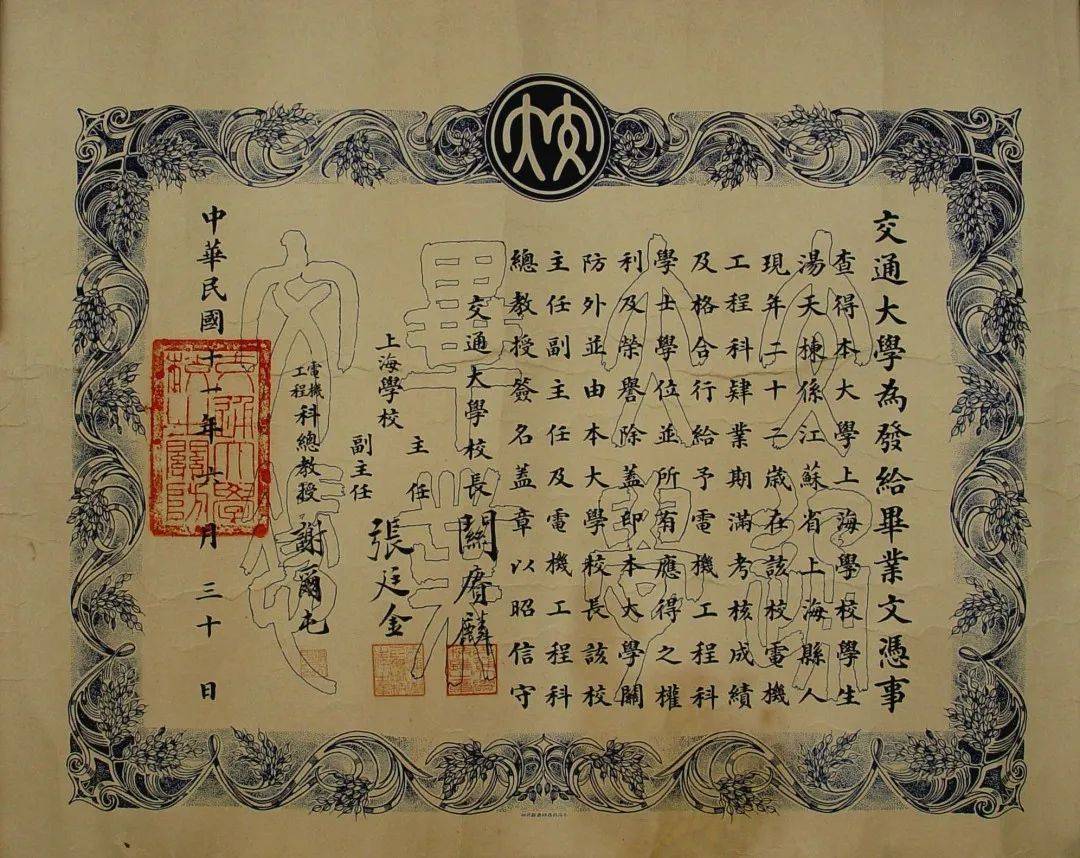 交通大學為發給畢業文憑事
查得本大學上海學校學生
湯天棟係江蘇省上海縣人
現年二十二歲在該校電機
工程科肄業期滿考核成績
及格合行給予電機工程科
學士學位並所有應得之權
利及榮譽除蓋印本大學關
防外並由本大學校長該校
主任副主任及電機工程科
總教授簽名蓋章以昭信守
交通大學校長 關賡麟
上海學校
主任
副主任 張廷金
電機工程科總教授 謝爾屯
中華民國十一年六月三十日
交通大學校之關防
交大
交通大學
畢業文憑